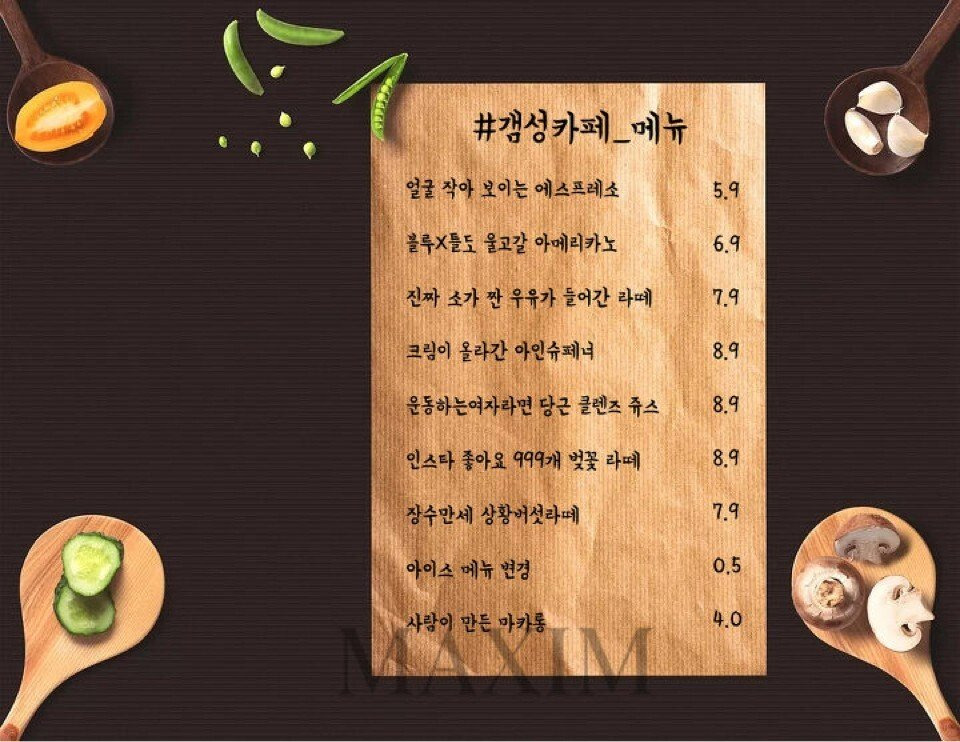 #갬성카페_메뉴
얼굴 작아 보이는 에스프레소 5.9
블루X틀도 울고갈 아메리카노 6.9
진짜 소가 짠 우유가 들어간 라떼 7.9
크림이 올라간 아인슈페너 8.9
운동하는여자라면 당근 클렌즈 쥬스 8.9
인스타 좋아요 999개 벚꽃 라떼 8.9
장수만세 상황버섯라떼 7.9
아이스 메뉴 변경 0.5
사람이 만든 마카롱 4.0
MAXIM